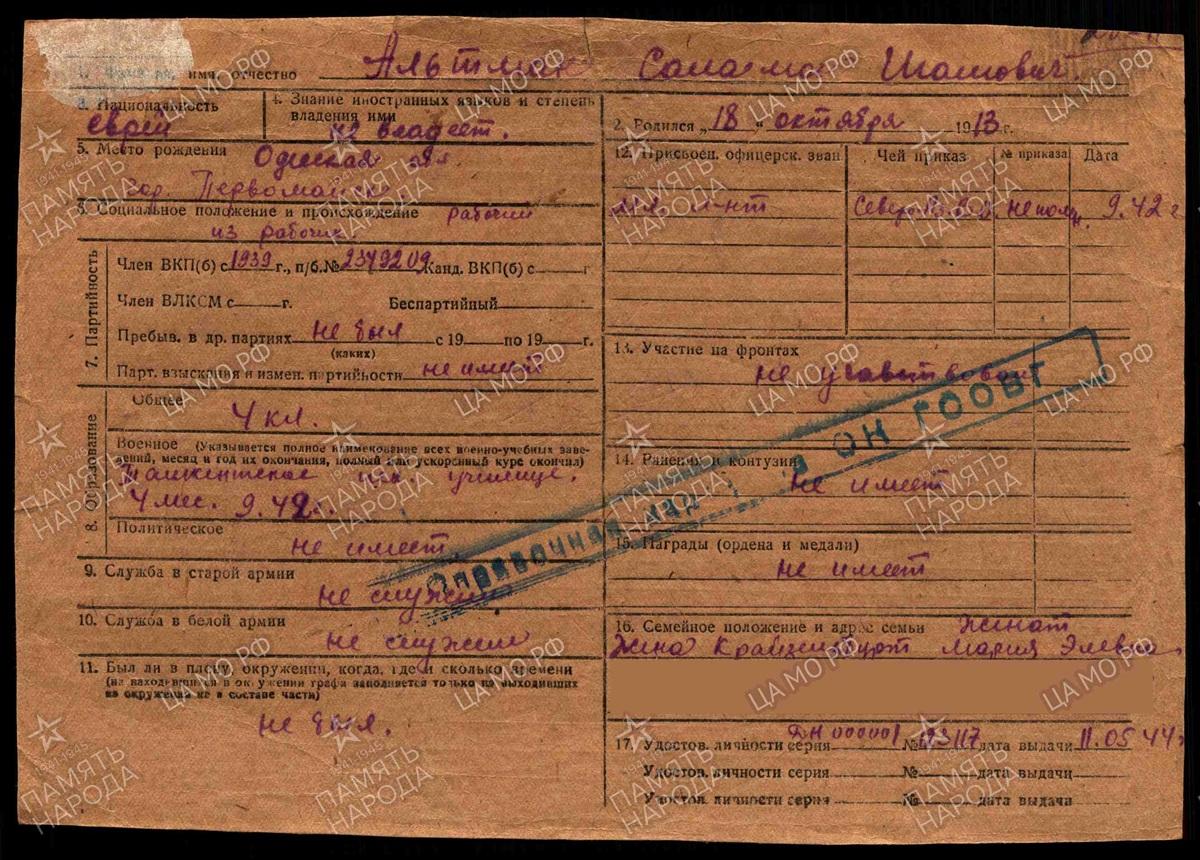 1. Фамилия, имя, отчество Альтман Саламон Шаমович.
3. Национальность еврей
4. Знание иностранных языков и степень
владения ими не владеет.
2. Родился „18“ октября 1913 г.
5. Место рождения Одеская обл.
гор. Первомайск
6. Социальное положение и происхождение рабочий
из рабочих
7. Партийность
Член ВКП(б) с 1939 г., п/б.№ 2379209 Канд. ВКП(б) с г.
Член ВЛКСМ с г. Беспартийный
Пребыв. в др. партиях не был с 19 по 19 г.
(каких)
Парт. взыскания и измен. партийности не имеет
8. Образование
Общее
4 кл.
Военное (Указывается полное наименование всех военно-учебных заве-
дений, месяц и год их окончания, полный или ускоренный курс окончил)
Ташкентское училище.
4 мес. 9.42 г.
Политическое
не имеет.
9. Служба в старой армии
не служил
10. Служба в белой армии
не служил
11. Был ли в плену, окружении, когда, где и сколько времени
(на находившихся в окружении графа заполняется только на выходивших
из окружения не в составе части)
не был.
12. Присвоен. офицерск. зван Чей приказ № приказа Дата
мл. л-нт 9.42 г
13. Участие на фронтах
не участвовал
14. Ранения и контузии
не имеет
15. Награды (ордена и медали)
не имеет
16. Семейное положение и адрес семьи женат
жена Мария
17. Удостов. личности серия ДН 000001 № дата выдачи 11.05 44 г
Удостов. личности серия № дата выдачи
Удостов. личности серия № дата выдачи
Справочная
ОН ГООВГ
ПАМЯТЬ НАРОДА
1941-1945
ЦА МО.РФ